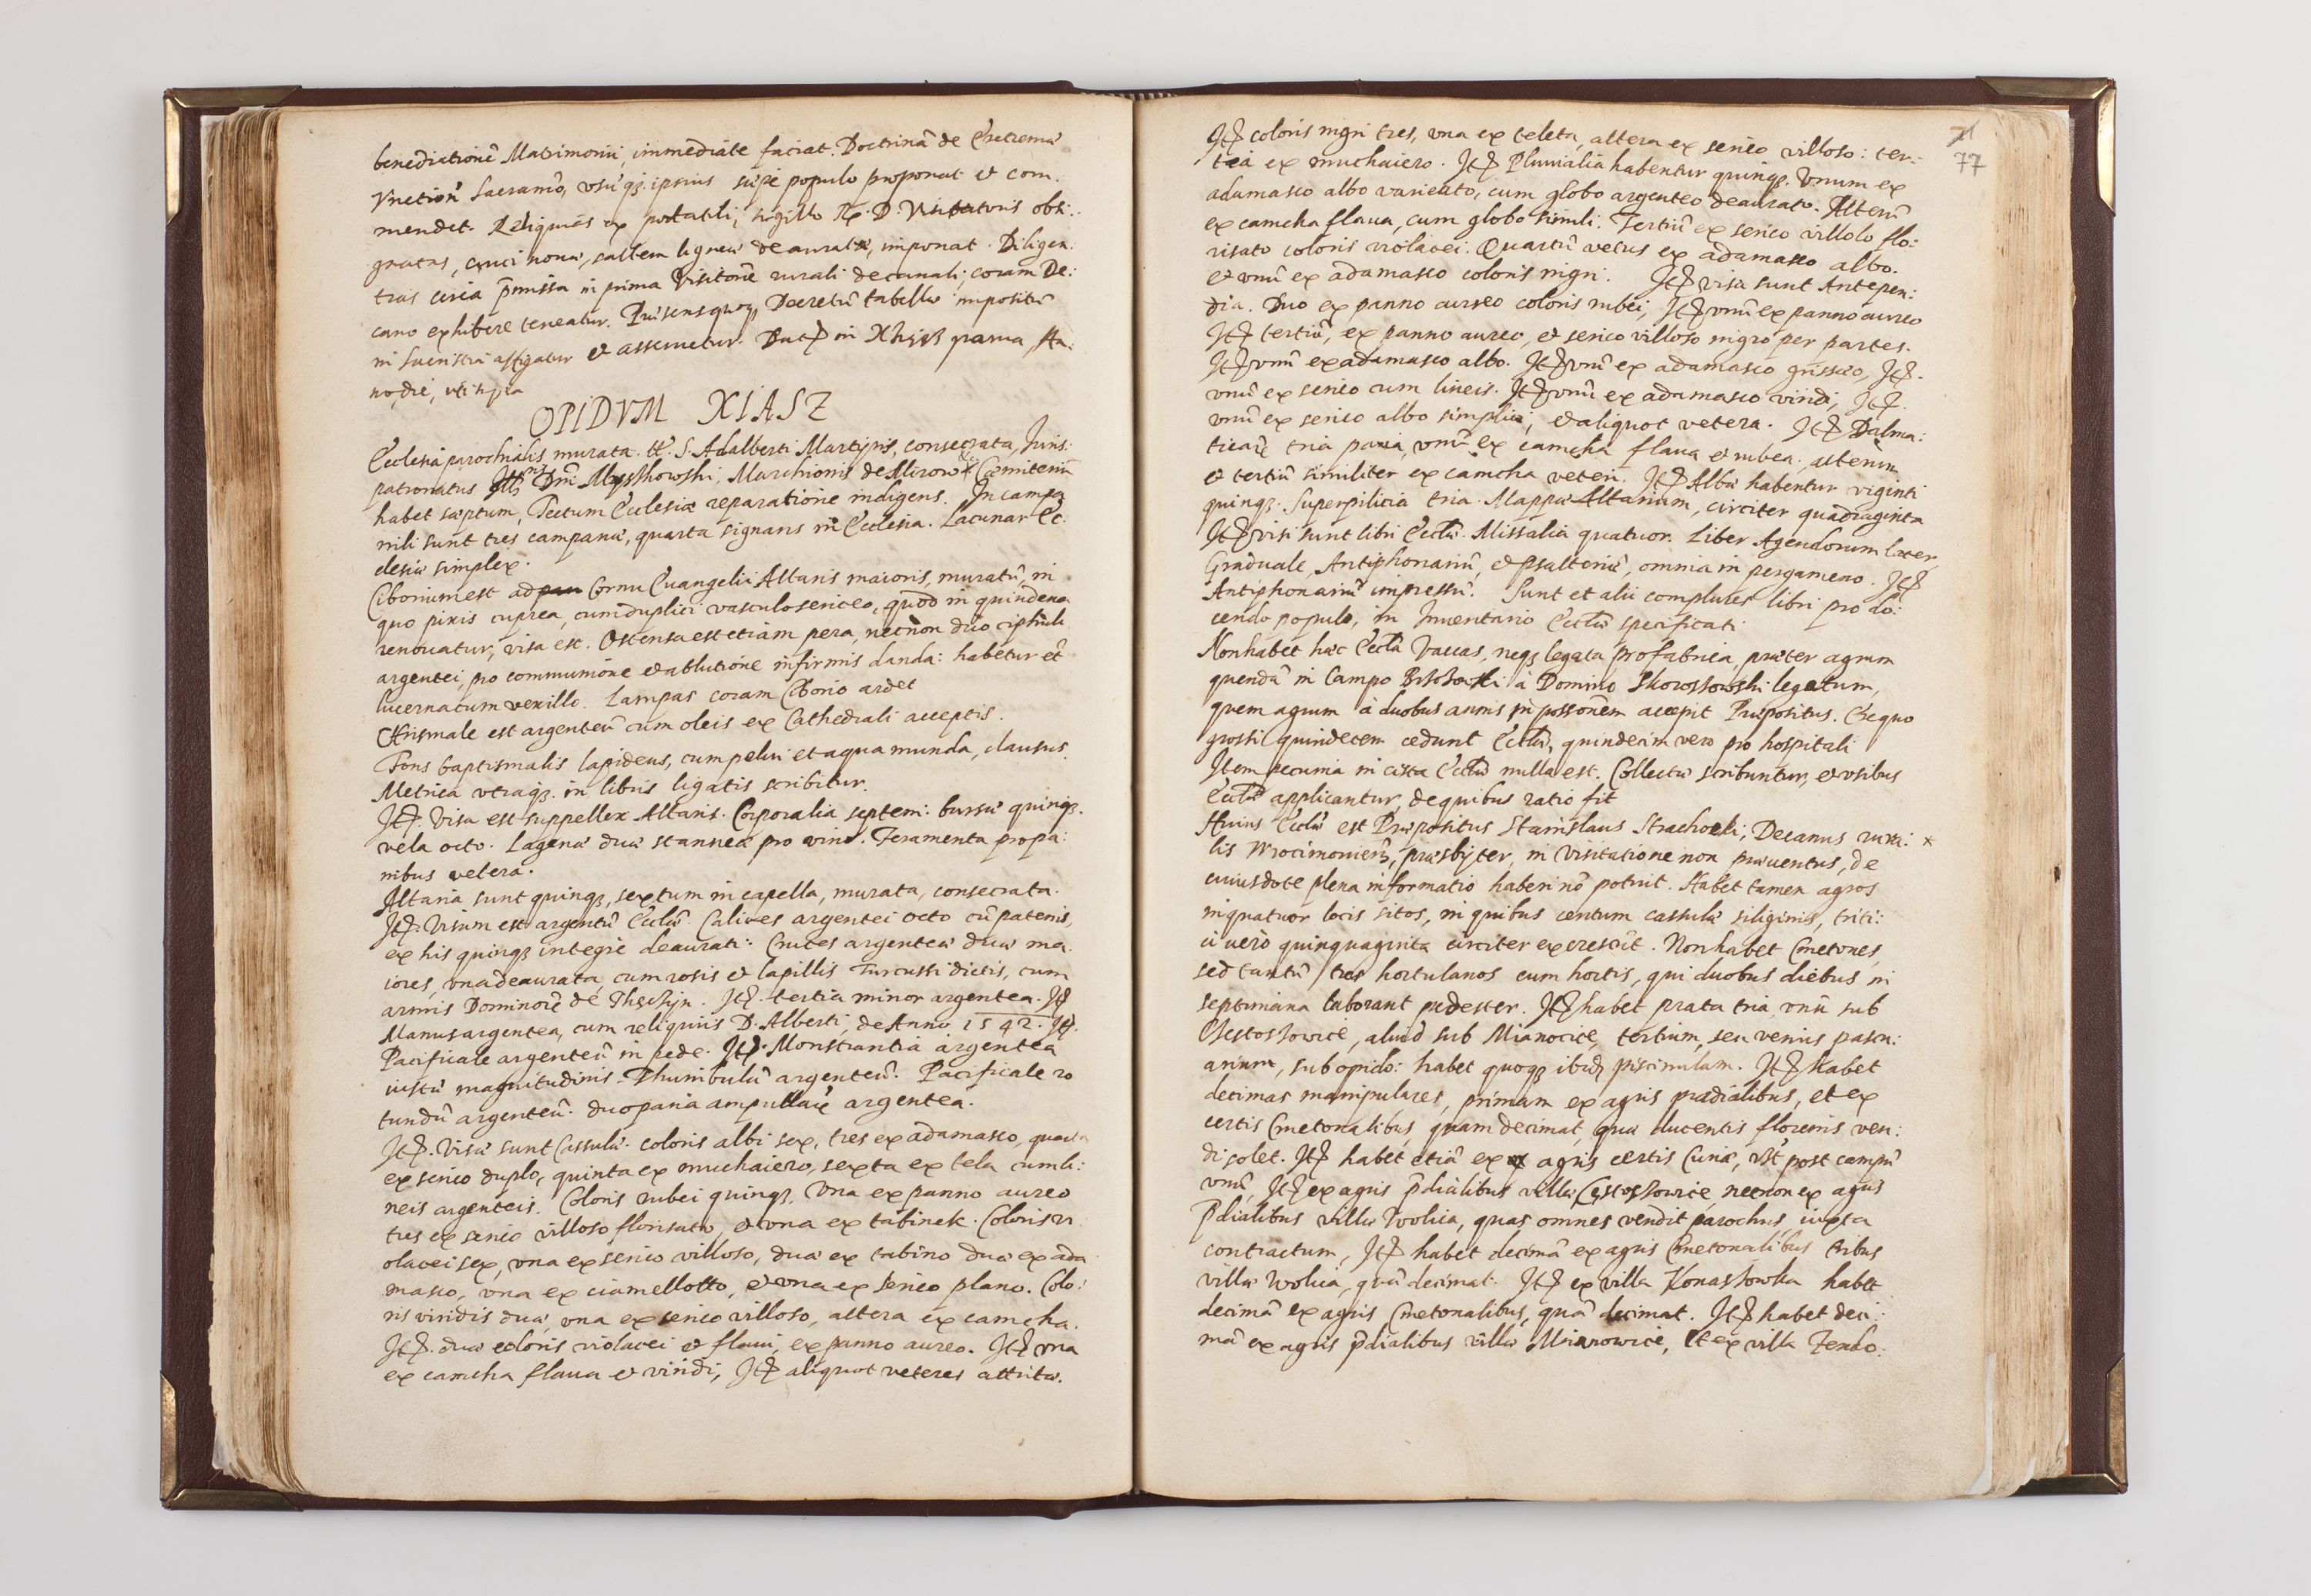 benedictionē Matrimonii, immediate faciat. Doctrinā de Extrema
Vnctioñ Sacramō, vsuq₃ ipsius sæpe populo proponat et com:
mendet. Reliquias ex portatili, sigillo R. D. Visitatoris obsi:
gnatas, cruci nouæ, saltem ligneæ deauratæ, imponat. Diligen:
tias circa p̄missa in prima Visitōne rurali decanali, coram De:
cano exhibere teneatur. Præsensquoq₃ Decretū tabellæ impositū
in Sacristia affigatur et asseruetur. Dat in Xhiiß parua, An:
no, die, vti supra
OPIDVM XIASZ
Ecclesia parochialis murata. tt. S. Adalberti Martyris, consecrata, Juris:
patronatus Illris Dn̄i Myszkowski, Marchionis de Mirow. Cœmiteriū
habet sæptum, Tectum Ecclesiæ reparatione indigens. In campa
nili sunt tres campanæ, quarta signans in Ecclesia. Lacunar Ec:
clesiæ simplex.
Ciborium est ad Cornu Euangelii Altaris maioris, muratū, in
quo pixis cuprea, cum duplici vasculo sericeo, quod in quindena
renouatur, visa est. Ostensa est etiam pera, necnon duo ciphuli
argentei, pro communione et ablutione infirmis danda: habetur et
lucerna cum vexillo. Lampas coram Ciborio ardet
Chrismale est argenteū cum oleis ex Cathedrali acceptis.
Fons baptismalis lapideus, cum pelui et aqua munda, clausus.
Metrica vtraq₃ in libris ligatis scribitur.
It. Visa est suppellex Altaris. Corporalia septem: bursæ quinq₃.
vela octo. Lagenæ duæ stanneæ pro vino. Feramenta propa:
nibus vetera.
Altaria sunt quinq₃, sextum in capella, murata, consecrata.
It. Visum est argentū Eccliæ. Calices argentei octo cū patenis,
ex his quinq₃ integre deaurati: Cruces argenteæ duæ ma
iores, vna deaurata, cum rosis et lapillis Turcussi dictis, cum
armis Dominorū de Thęczyn. It. tertia minor argentea. It
Manus argentea, cum reliquiis D. Alberti, de Anno 1542. It.
Pacificale argenteū in pede. It. Monstrantia argentea
iustæ magnitudinis. Thuribulū argenteū. Pacificale ro
tundū argenteū. duo paria ampullarū argentea.
It. Visæ sunt Cassulæ. coloris albi sex, tres ex adamasco, quarta
ex serico duplo, quinta ex muchaiero, sexta ex tela cum li:
neis argenteis. Coloris rubei quinq₃. Vna ex panno aureo
tres ex serico villoso florisato, et vna ex tabinek. Coloris vi
olacei sex, vna ex serico villoso, duæ ex tabino duæ ex ada
masco, vna ex ciamellotto, et vna ex serico plano. Colo:
ris viridis duæ, vna ex serico villoso, altera ex camcha.
It. duæ coloris violacei et flaui, ex panno aureo. It vna
ex camcha flaua et viridi, It aliquot veteres attritæ.
71
77
It coloris nigri tres, vna ex teleta, altera ex serico villoso: ter:
tia ex muchaiero. It Pluuialia habentur quinq₃. Vnum ex
adamasco albo varieato, cum globo argenteo deaurato. Alterū
ex camcha flaua, cum globo simili. Tertiū ex serico villoso flo:
risato coloris violacei. Quartū vetus ex adamasco albo.
et vnū ex adamasco coloris nigri. It visa sunt Antepen:
dia. Duo ex panno aureo coloris rubei, It vnū ex panno aureo
It tertiū, ex panno aureo, et serico villoso nigro per partes.
It vnū ex adamasco albo. It vnū ex adamasco grisseo, It.
vnū ex serico cum lineis. It vnū ex adamasco viridi, It.
vnū ex serico albo simplici, et aliquot vetera. It Dalma:
ticarū tria paria, vnū ex camcha flaua et rubea, alterum
et tertiū similiter ex camcha veteri. It Albæ habentur viginti
quinq₃. Superpilicia tria. Mappæ Altarium, circiter quadraginta
It visi sunt libri Eccliæ. Missalia quatuor. Liber Agendorum lacer,
Graduale, Antiphonariū, et Psalteriū, omnia in pergameno. It
Antiphonariū impressū. Sunt et alii complures libri pro do:
cendo populo, in Inuentario Eccliæ specificati
Non habet hæc Ecclīa Vaccas, neq₃ legata pro fabrica, præter agrum
quendā in Campo à Domino Skoroszowski legatum,
quem agrum à duobus annis in possōnem accepit Præpositus. Ex quo
grossi quindecem cedunt Eccliæ, quindecim vero pro hospitali
Item pecunia in cista Eccliæ nulla est. Collectæ scribuntur, et vsibus
Eccliæ applicantur, de quibus ratio fit
Huius Eccliæ est Præpositus Stanislaus Strachocki, Decanus rura: ×
lis Wrocimonieñ, præsbyter, in visitatione non præuentus, de
cuius dote plena informatio haberi nō potuit. Habet tamen agros
in quatuor locis sitos, in quibus centum cassulæ siliginis, tritic:
ci vero quinquaginta circiter excrescūt. Non habet Cmetones,
sed tantū tres hortulanos cum hortis, qui duobus diebus in
septimana laborant pedester. It habet prata tria, vnū sub
Czestoszowice, aliud sub Mianocice, tertium, seu verius pascu:
arium, sub opido: habet quoq₃ ibid piscinulam. It habet
decimas manipulares, primam ex agris prædialibus, et ex
certis Cmetonalibus, quam decimat, quæ ducentis florenis ven:
di solet. It habet etiā ex agris certis Curiæ, vſt post campū
vnū, It ex agris p̄dialibus villæ Częstoszowice, necnon ex agris
P̄dialibus villæ Wolica, quas omnes vendit parochus, iuxta
contractum, It habet decimā ex agris Cmetonalibus tribus
villæ Wolica, quā decimat. It ex villa Konaszowka habet
decimā ex agris Cmetonalibus, quā decimat. It habet deci:
mā ex agris p̄dialibus villæ Mianowice, Et ex villa Tendo: